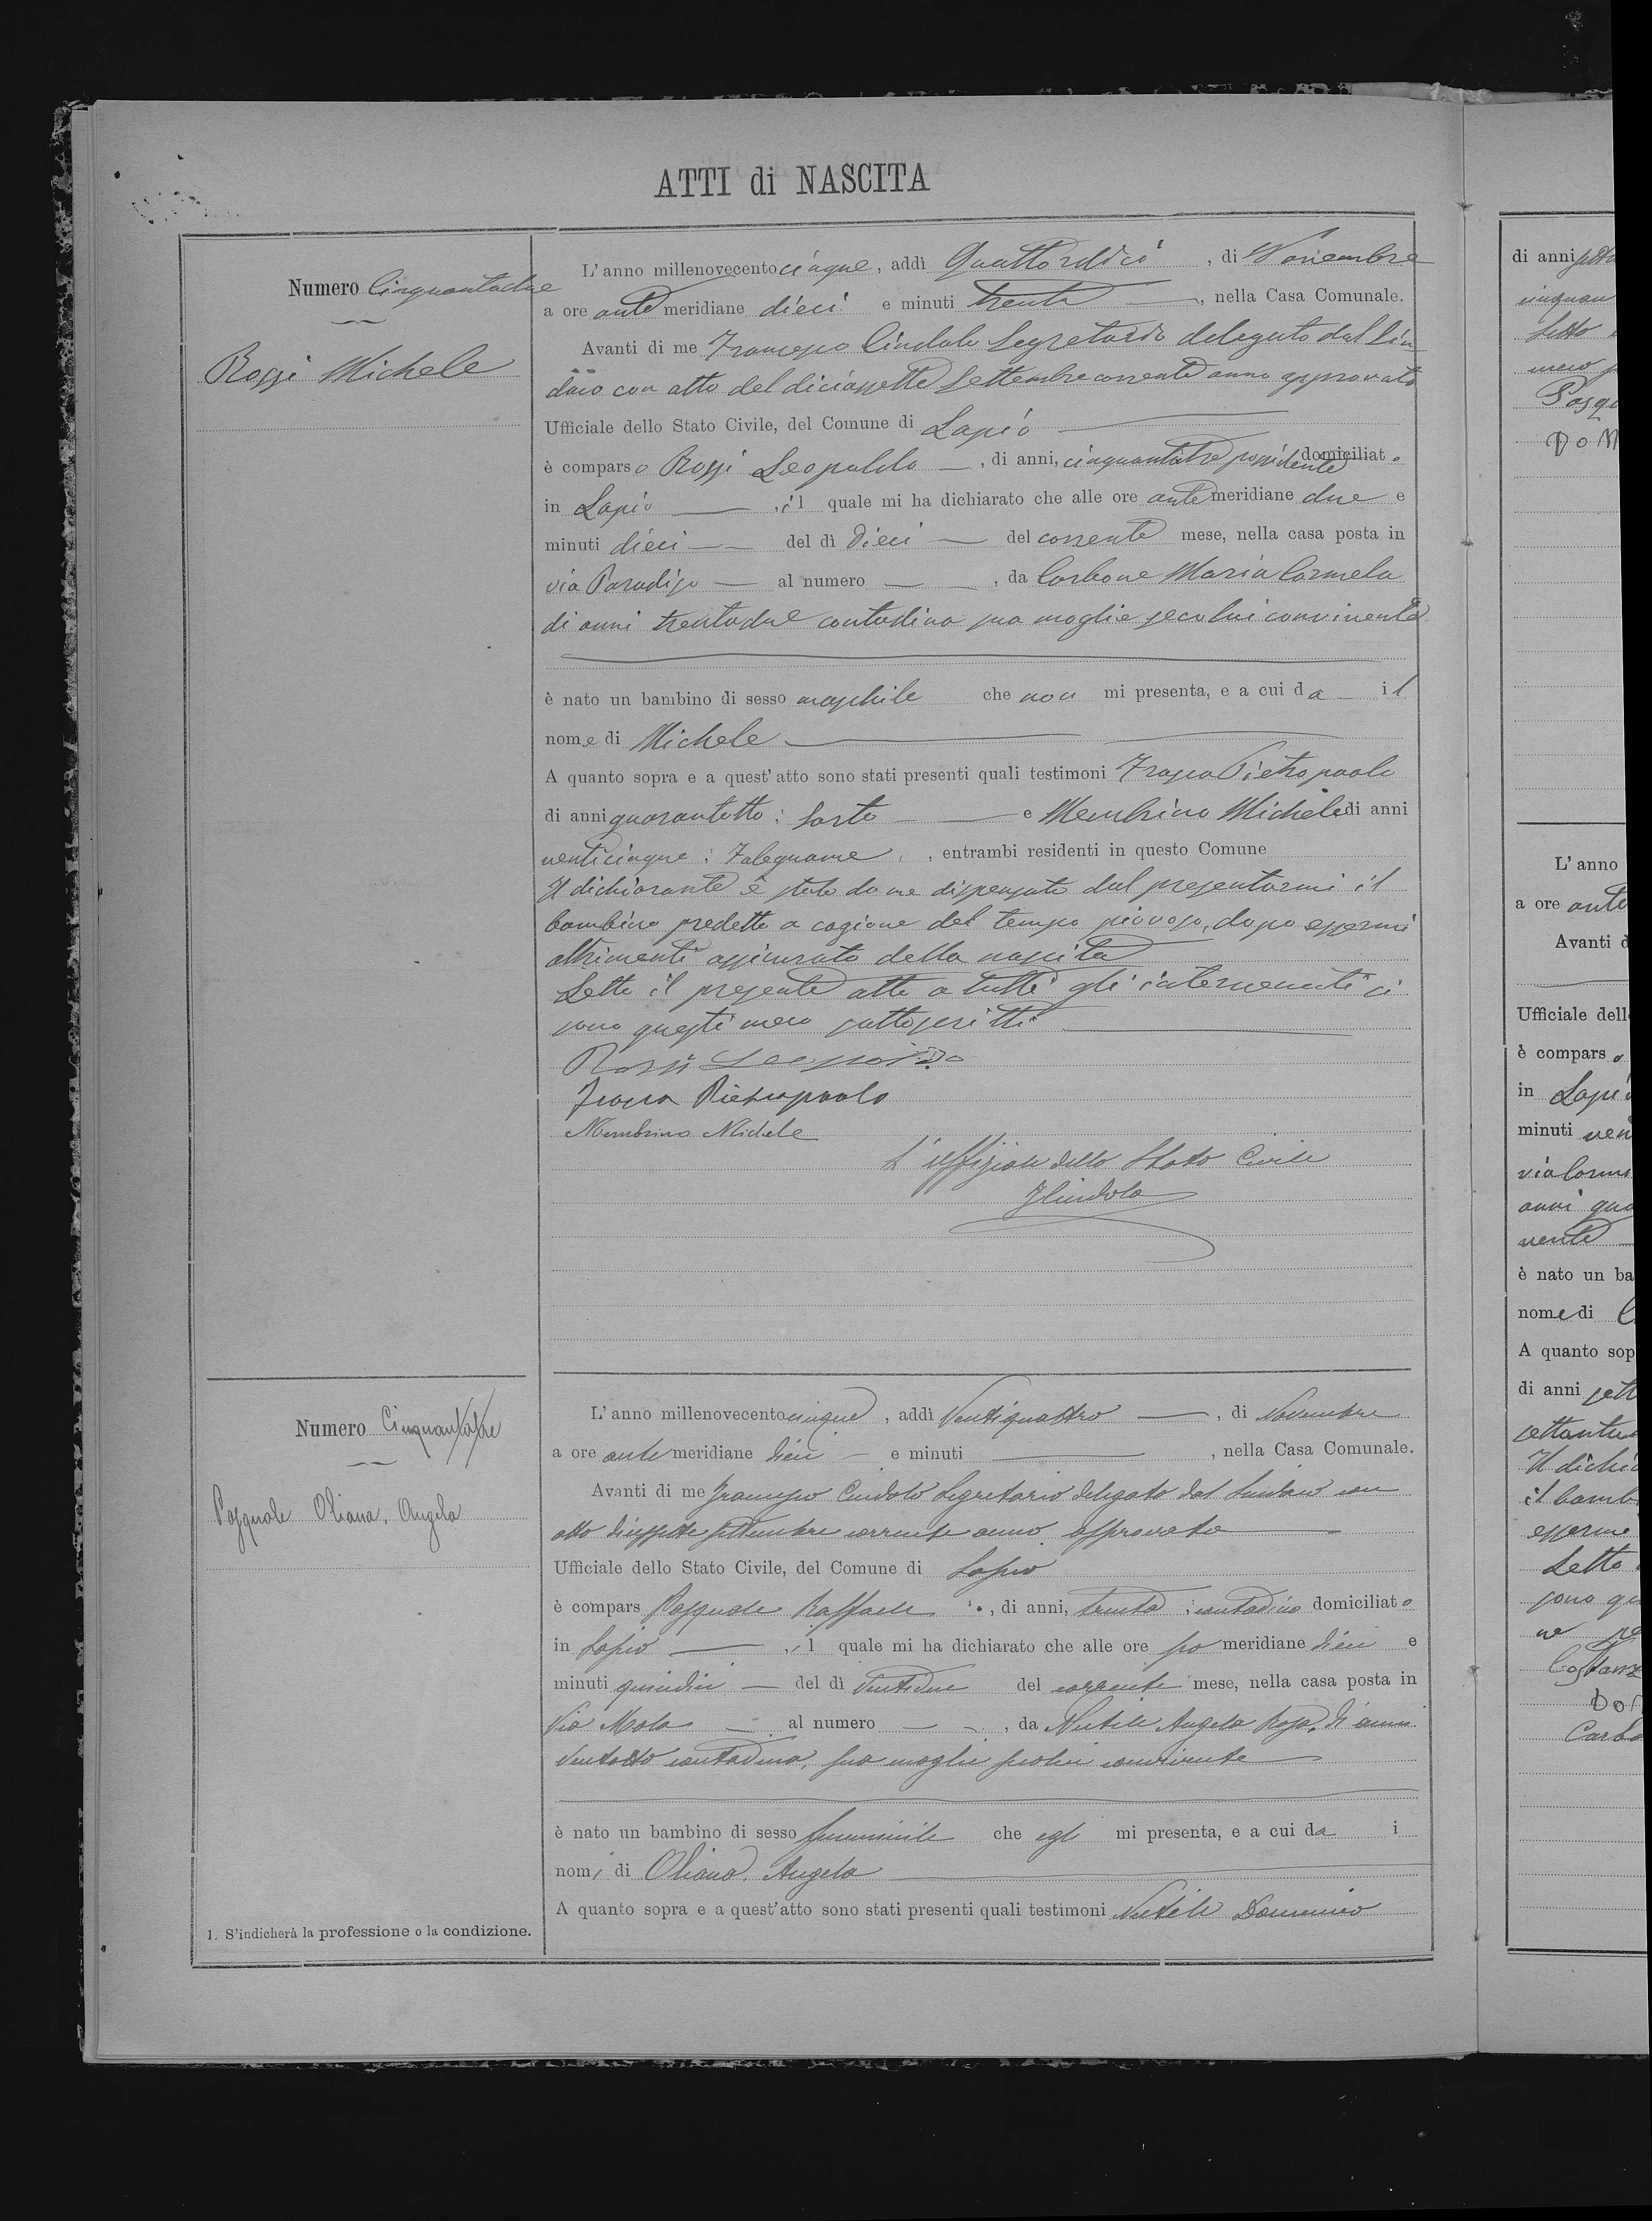 ATTI di NASCITA
Numero Cinquantadue
Rossi Michele
L'anno millenovecento cinque, addì Quattordici, di Novembre
a ore ante meridiane dieci e minuti trenta, nella Casa Comunale.
Avanti di me Francesco Cindolo Segretario delegato dal Sin
daco con atto del diciassette Settembre corrente anno approvato
Ufficiale dello Stato Civile, del Comune di Lapio
è comparso Rossi Leopoldo, di anni, cinquantatre possidente domiciliato
in Lapio, il quale mi ha dichiarato che alle ore ante meridiane due e
minuti dieci del dì dieci del corrente mese, nella casa posta in
via Paradiso al numero, da Carbone Maria Carmela
di anni trentadue contadina sua moglie seco lui convivente
è nato un bambino di sesso maschile che non mi presenta, e a cui da il
nome di Michele
A quanto sopra e a quest'atto sono stati presenti quali testimoni Frasca Pietropaolo
di anni quarantotto: Sarto e Membrino Michele di anni
venticinque: Falegname, entrambi residenti in questo Comune
Il dichiarante è stato da me dispensato dal presentarmi il
bambino predetto a cagione del tempo piovoso, dopo essermi
altrimenti assicurato della nascita
Letto il presente atto a tutti gli intervenuti si
sono questi meco sottoscritti
Rossi Leopoldo
Frasca Pietropaolo
Membrino Michele
L'uffiziale dello Stato Civile
F Cindolo
Numero Cinquantatre
Pasquale Oliana, Angela
L'anno millenovecento cinque, addì Ventiquattro, di Novembre
a ore ante meridiane dieci e minuti, nella Casa Comunale.
Avanti di me Francesco Cindolo Segretario delegato dal Sindaco con
atto diciassette Settembre corrente anno approvato
Ufficiale dello Stato Civile, del Comune di Lapio
è compars Pasquale Raffaele, di anni, trenta, contadino domiciliato
in Lapio, il quale mi ha dichiarato che alle ore po meridiane dieci e
minuti quindici del dì Ventidue del corrente mese, nella casa posta in
Via Mola al numero, da Nutile Angela Rosa, di anni
Ventotto contadina, sua moglie seco lui convivente
è nato un bambino di sesso femminile che egli mi presenta, e a cui da i
nomi di Oliana, Angela
A quanto sopra e a quest'atto sono stati presenti quali testimoni Nutile Domenico
1. S'indicherà la professione o la condizione.
di anni
L'anno
a ore ante
Avanti d
Ufficiale dell
è comparso
in Lapio
minuti ven
via
anni qua
vente
è nato un ba
nome di
A quanto sop
di anni sett
settantu
Il dichia
il bamb
essermi
Letto
sono qu